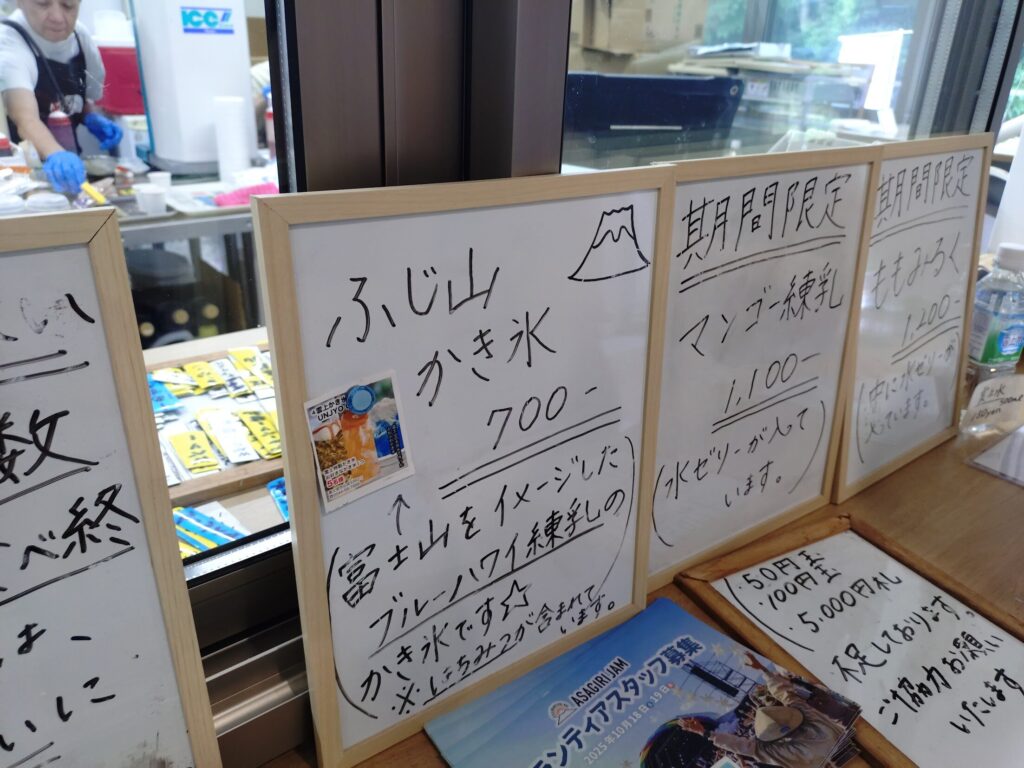 ICC
い
数
べ終
いに
ふじ山
かき氷
700-
雲上かき氷
UNJYO
(富士山をイメージした
ブルーハワイ練乳の
かき氷です☆
※はちみつが含まれて
います。)
期間限定
マンゴー練乳
1,100-
(氷ゼリーが入って
います。)
期間限定
ももみるく
1,200-
(中に氷ゼリーが
入っています。)
(・50円玉
・100円玉
・5,000円札
不足しております。
ご協力お願い
いたします
ASAGIRI JAM
ランティアスタッフ募集
2025年10月18日